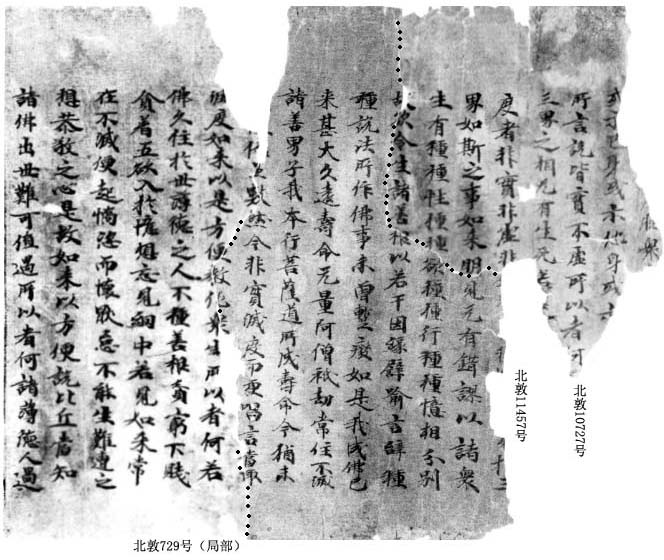 示己身或示他身或示
所言說皆實不虛所以者何
三界之相无有生死
度者非實非虛非
界如斯之事如来明見无有錯謬以諸衆
生有種種性種種欲種種行種種憶相分別
故欲令生諸善根以若干因緣譬喻言辭種
種說法所作佛事未曾暫癈如是我成佛已
来甚大久遠壽命无量阿僧祇劫常住不滅
諸善男子我本行菩薩道所成壽命今猶未
數然今非實滅度而便唱言當取
滅度如来以是方便教化衆生所以者何若
佛久住於世薄德之人不種善根貧窮下賤
貪著五欲入於憶想妄見網中若見如来常
在不滅便起憍恣而懷厭怠不能生難遭之
想恭敬之心是故如来以方便說比丘當知
諸佛出世難可值遇所以者何諸薄德人過
北敦10727号
北敦11457号
北敦729号（局部）